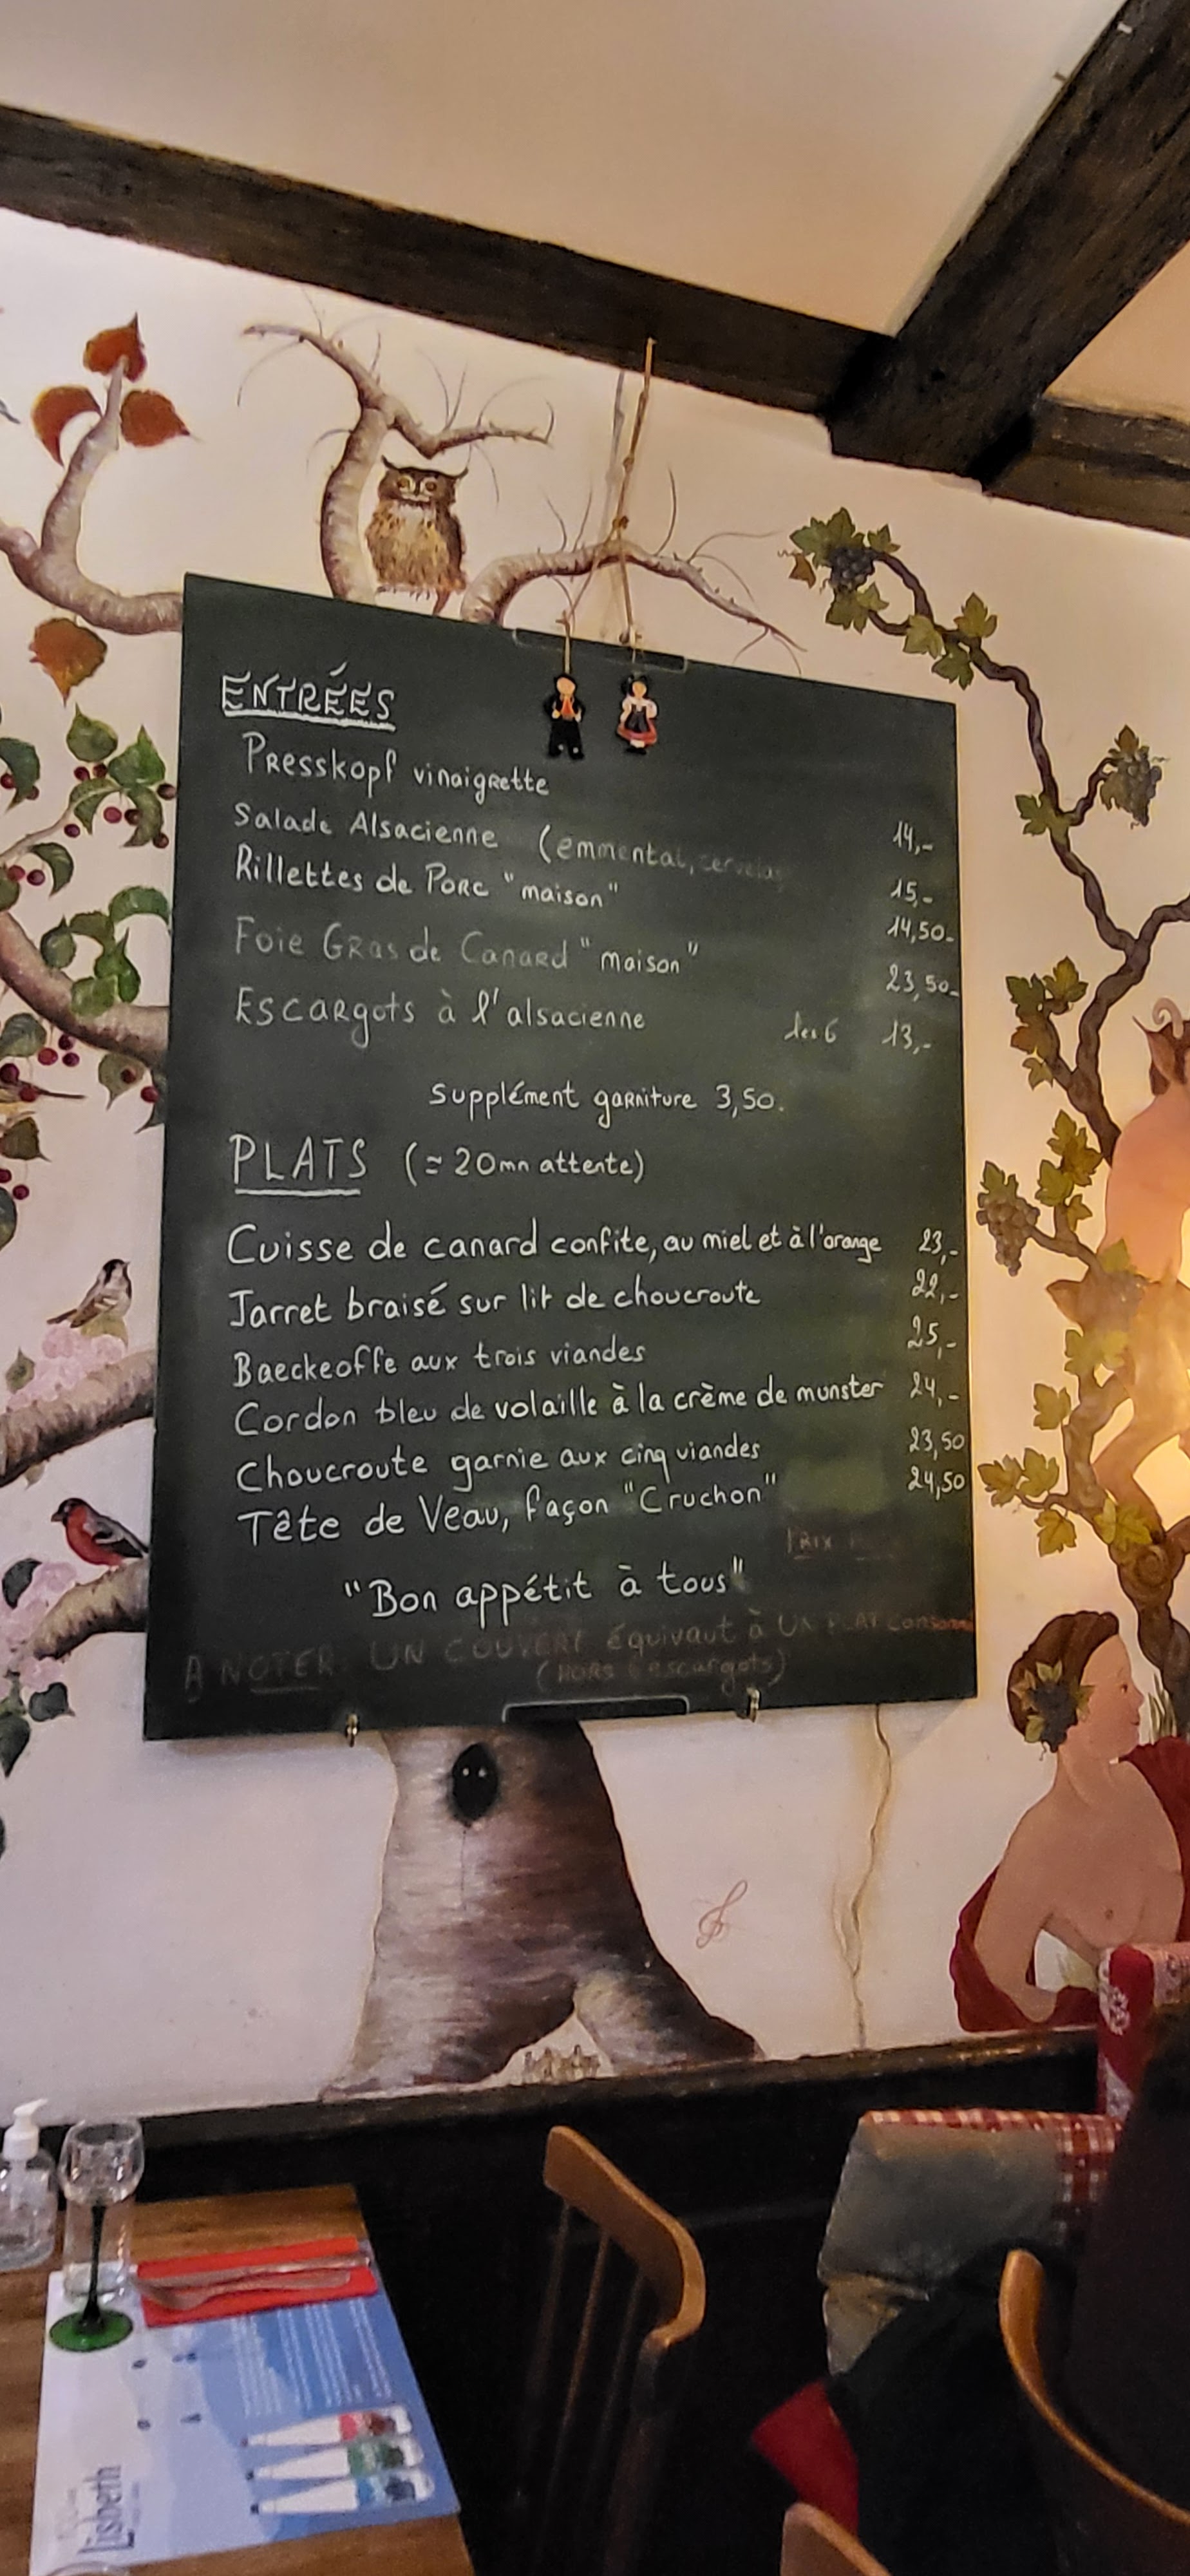 ENTRÉES
Presskopf vinaigrette 14,-
Salade Alsacienne (emmental, cervelas 15,-
Rillettes de Porc "maison" 14,50-
Foie Gras de Canard "maison" 23,50-
Escargots à l'alsacienne les 6 13,-
Supplément garniture 3,50.
PLATS (≃ 20mn attente)
Cuisse de canard confite, au miel et à l'orange 23,-
Jarret braisé sur lit de choucroute 22,-
Baeckeoffe aux trois viandes 25,-
Cordon bleu de volaille à la crème de munster 24,-
Choucroute garnie aux cinq viandes 23,50
Tête de Veau, façon "Cruchon" 24,50
PRIX
"Bon appétit à tous"
A NOTER: UN COUVERT équivaut à UN PLAT consommé
(HORS escargots)
Lisbeth